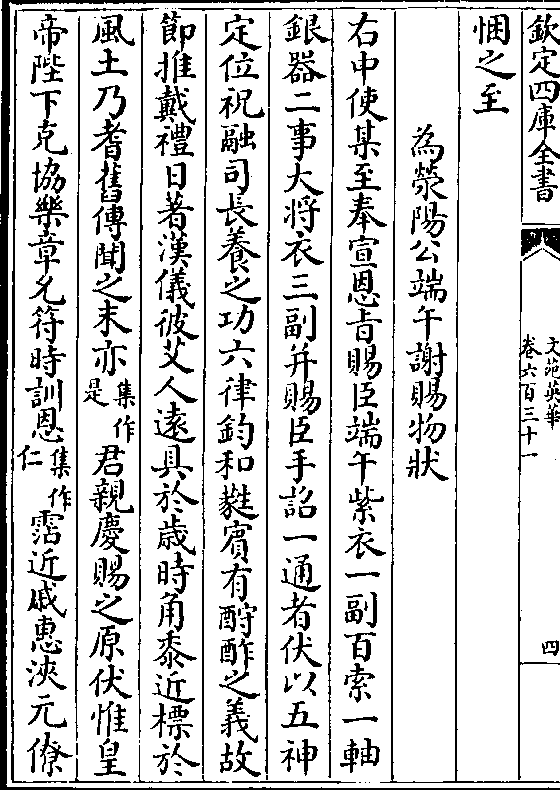 欽定四庫全書
文苑英華
卷六百三十一
四
悃之至
為滎陽公端午謝賜物狀
右中使某至奉宣恩旨賜臣端午紫衣一副百索一軸
銀器二事大將衣三副并賜臣手詔一通者伏以五神
定位祝融司長養之功六律鈞和蕤賓有酧酢之義故
節推戴禮日著漢儀彼艾人遠具於歲時角黍近標於
風土乃耆舊傳聞之末亦集作是君親慶賜之原伏惟皇
帝陛下克協樂章允符時訓恩集作仁霑近戚惠浹元僚